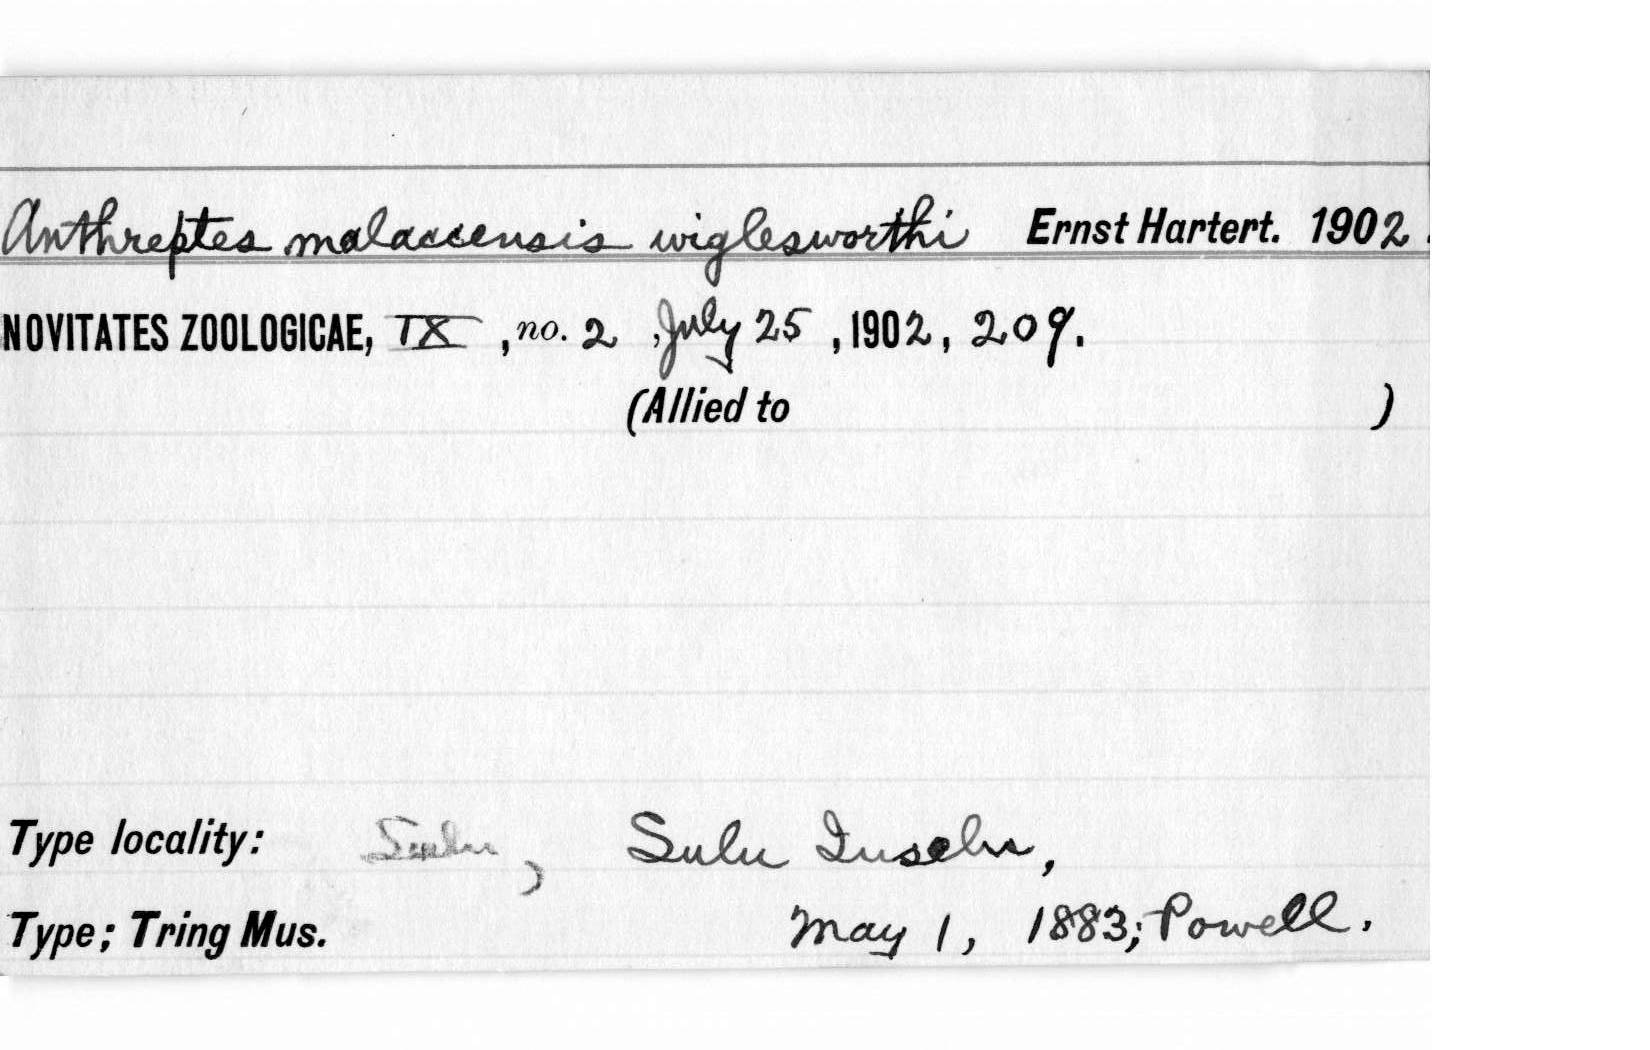 Anthreptes malaccensis wiglesworthi Ernst Hartert. 1902.
NOVITATES ZOOLOGICAE, IX, no. 2, July 25, 1902, 209.
(Allied to )
Type locality: Sulu, Sulu Inseln,
Type; Tring Mus. May 1, 1883; Powell.